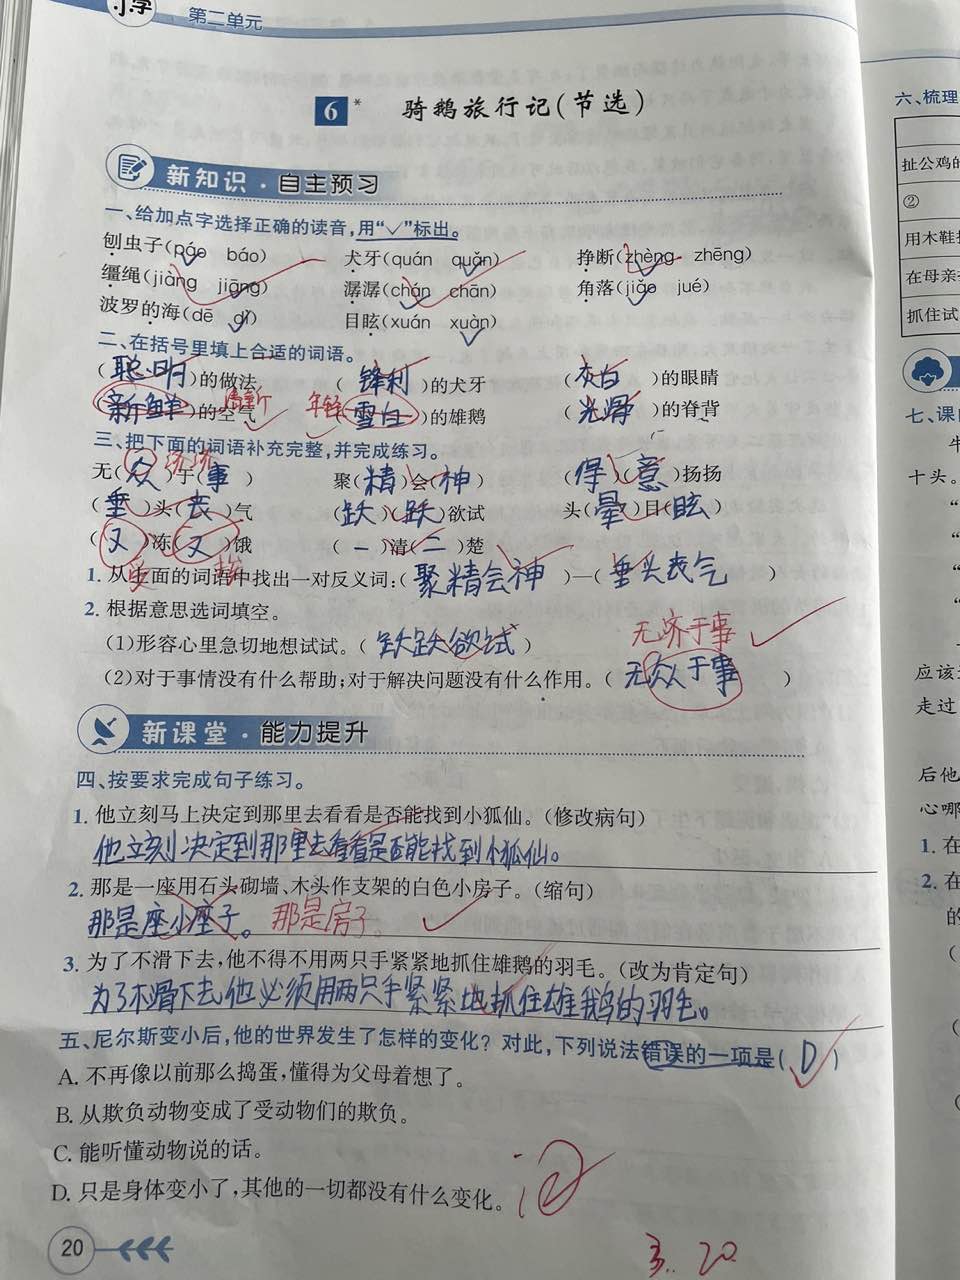 小学 第二单元
6* 骑鹅旅行记(节选)
新知识·自主预习
一、给加点字选择正确的读音,用“√”标出。
刨虫子(páo báo) 犬牙(quán quǎn) 挣断(zhèng zhēng)
缰绳(jiàng jiāng) 潺潺(chán chān) 角落(jiǎo jué)
波罗的海(dē dì) 目眩(xuán xuàn)
二、在括号里填上合适的词语。
(聪明)的做法 (锋利)的犬牙 (灰白)的眼睛
(新鲜)的空气 清新 年轻 (雪白)的雄鹅 (光滑)的脊背
三、把下面的词语补充完整,并完成练习。
无(众)于(事) 济 聚(精)会(神) (得)(意)扬扬
(垂)头(丧)气 (跃)(跃)欲试 头(晕)目(眩)
(又)冻(又)饿 (一)清(二)楚
受 挨
1. 从上面的词语中找出一对反义词:(聚精会神)—(垂头丧气)
2. 根据意思选词填空。
(1)形容心里急切地想试试。(跃跃欲试)
无济于事
(2)对于事情没有什么帮助;对于解决问题没有什么作用。(无众于事)
新课堂·能力提升
四、按要求完成句子练习。
1. 他立刻马上决定到那里去看看是否能找到小狐仙。(修改病句)
他立刻决定到那里去看看是否能找到小狐仙。
2. 那是一座用石头砌墙、木头作支架的白色小房子。(缩句)
那是座小座子。 那是房子。
3. 为了不滑下去,他不得不用两只手紧紧地抓住雄鹅的羽毛。(改为肯定句)
为了不滑下去,他必须用两只手紧紧地抓住雄鹅的羽毛。
五、尼尔斯变小后,他的世界发生了怎样的变化？对此,下列说法错误的一项是(D)
A. 不再像以前那么捣蛋,懂得为父母着想了。
B. 从欺负动物变成了受动物们的欺负。
C. 能听懂动物说的话。
D. 只是身体变小了,其他的一切都没有什么变化。
3.20
20
六、梳理
扯公鸡的
②
用木鞋
在母亲
抓住试
七、课
十头。
应该
走过
后他
心哪
1. 在
2. 在
的